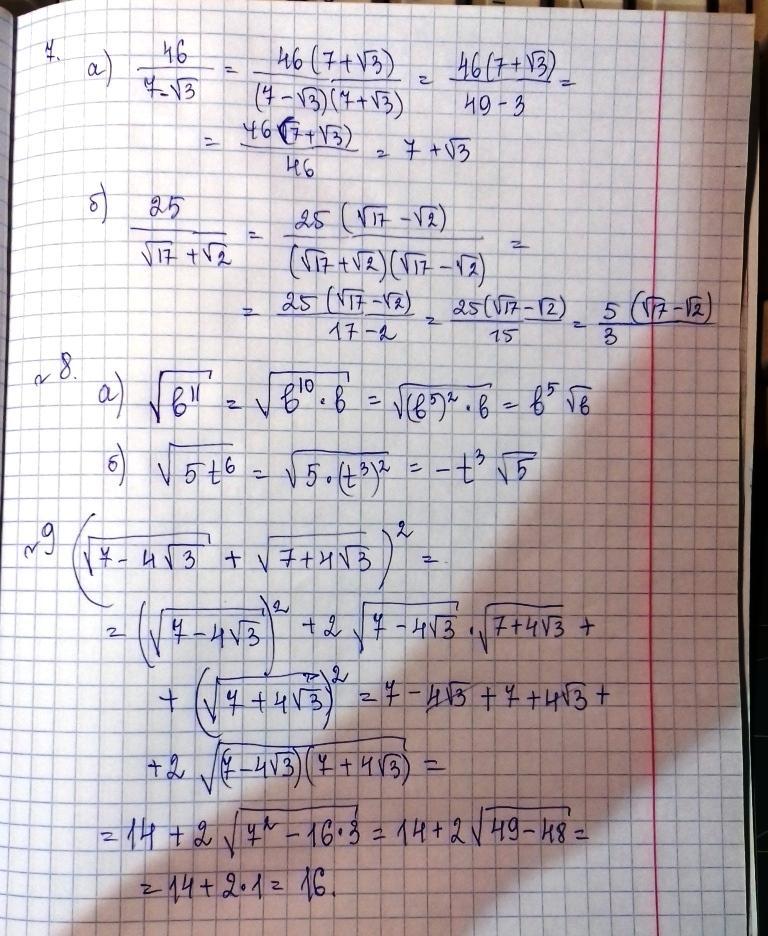 7. а) 46/(7-√3) = 46(7+√3)/((7-√3)(7+√3)) = 46(7+√3)/(49-3) =
= 46(7+√3)/46 = 7+√3
б) 25/(√17+√2) = 25(√17-√2)/((√17+√2)(√17-√2)) =
= 25(√17-√2)/(17-2) = 25(√17-√2)/15 = 5(√17-√2)/3
№8.
а) √(b¹¹) = √(b¹⁰·b) = √((b⁵)²·b) = b⁵√b
б) √(5t⁶) = √(5·(t³)²) = -t³√5
№9 (√(7-4√3) + √(7+4√3))² =
= (√(7-4√3))² + 2√(7-4√3)·√(7+4√3) +
+ (√(7+4√3))² = 7-4√3+7+4√3+
+2√((7-4√3)(7+4√3)) =
= 14+2√(7²-16·3) = 14+2√(49-48) =
= 14+2·1 = 16.